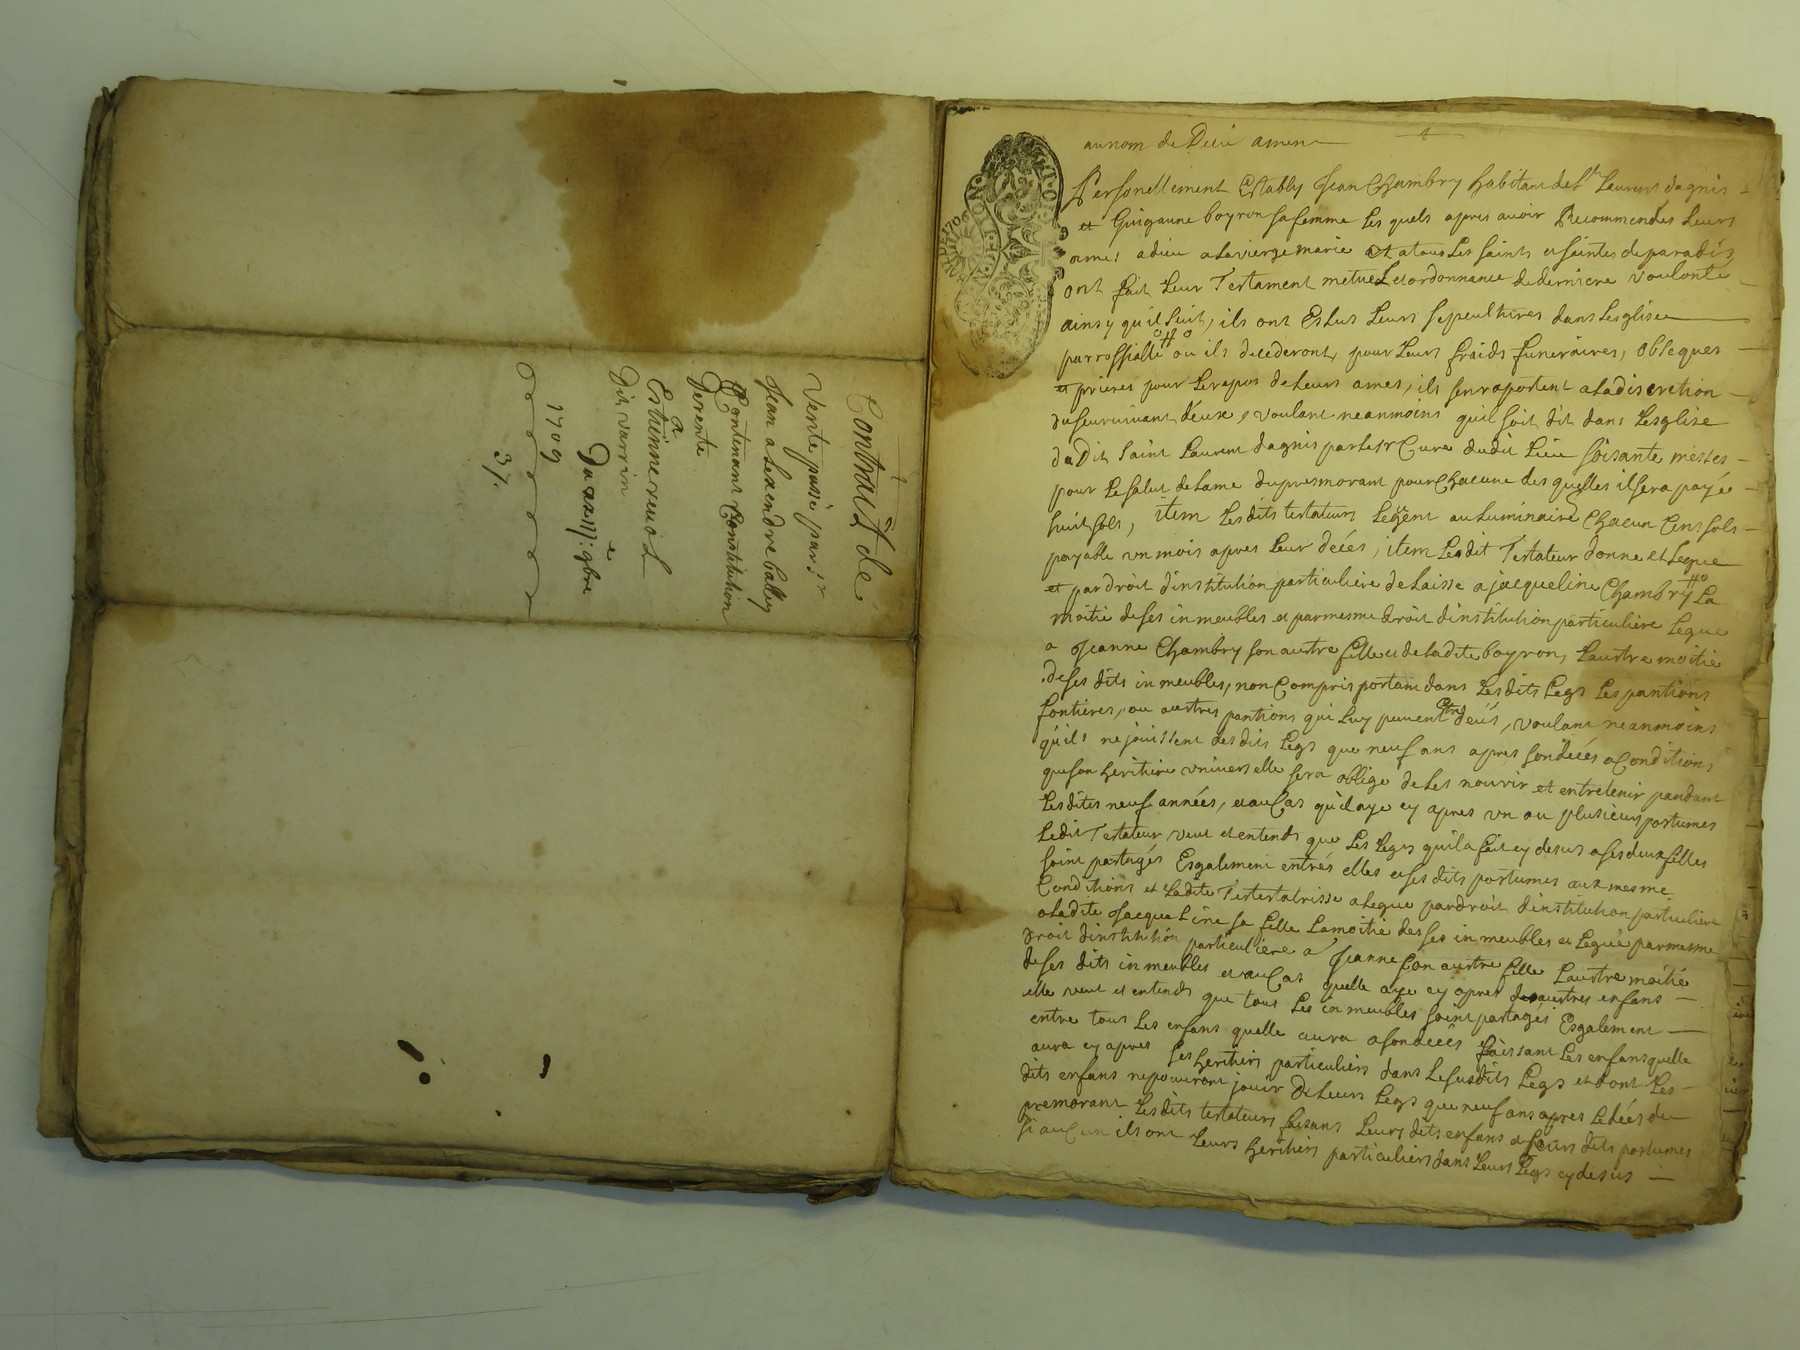 Contrat de
Vente passé par sr
Jean alexendre Calley
Contenant Constitution
De rente
a
Estienne revol
Dit varrin
Du xxiij: 9bre
1709
37.
au nom de Dieu amen
Personellement Estably Jean Chambry habitant de st Laurens dagnis
et Guigaune boyron sa femme Les quels apres avoir Recommendés Leurs
ames a dieu a la vierge marie Et a tous Les saints et saintes de paradis
ont fait Leur Testament metuel et ordonnance de derniere voulonté
ainsy qu il suit, ils ont Eslus Leurs sepeultures dans Lesglise
parrossialle ou ils decederont, pour Leurs fraids funeraires, obseques
et prieres pour Le repos de Leurs ames, ils sen raportent a La discretion
du seurvivant d'eux, voulant neanmoins qu'il soit dit dans Lesglise
du Dit saint Laurent dagnis par Le sr Cure dudit Lieu soisante messes
pour Le salut de Lame du premorant pour Chacune des quelles il sera payé
huit sols, item Les dits testateurs Legent au Luminaire Chacun Cens sols
payable un mois apres Leur decés, item Ledit Testateur donne et Legue
et par droit d'institution particuliere delaisse a jacqueline Chambry La
moitié de ses inmeubles et par mesme droit d'institution particuliere Legue
a Jeanne Chambry son austre fille et de Ladite boyron, Laustre moitié
de ses dits inmeubles, non Compris portant dans Lesdits Legs Les pantions
fontieres, ou austres pantions qui Luy peuvent Etre deües, voulant neanmoins
qu'ils ne jouissent desdits Legs que neuf ans apres son decés a Conditions
que son heritiere universelle sera oblige de Les nourir et entretenir pandant
Lesdites neuf années, et au Cas qu'il aye cy apres un ou plusieurs postumes
Ledit Testateur veut et entends que Les Legs qu'il a fait cy desus a ses deux filles
soint partagés Esgalement entrés elles et ses dits postumes aux mesme
Conditions et Ladite Testetatrisse a Legue par droit d'institution particuliere
a Ladite Jacqueline sa fille La moitié des ses inmeubles et Legue par mesme
droit d'institution particuliere a Jeanne son austre fille Laustre moitié
de ses dits inmeubles et au Cas quelle aye cy apres des austres enfans
elle veut et entends que tous Les inmeubles soint partagés Esgalement
entre tous Les enfans quelle aura a son decés faissant Les enfans quelle
aura cy apres ses heritiers particuliers dans Le susdits Legs et dont Les
dits enfans ne pouront jouir de Leurs Legs que neuf ans apres Le decés du
premorant Lesdits testateurs faisans Leurs dits enfans et Leurs dits postumes
si aucun ils ont Leurs heritiers particuliers dans Leurs Legs cy desus